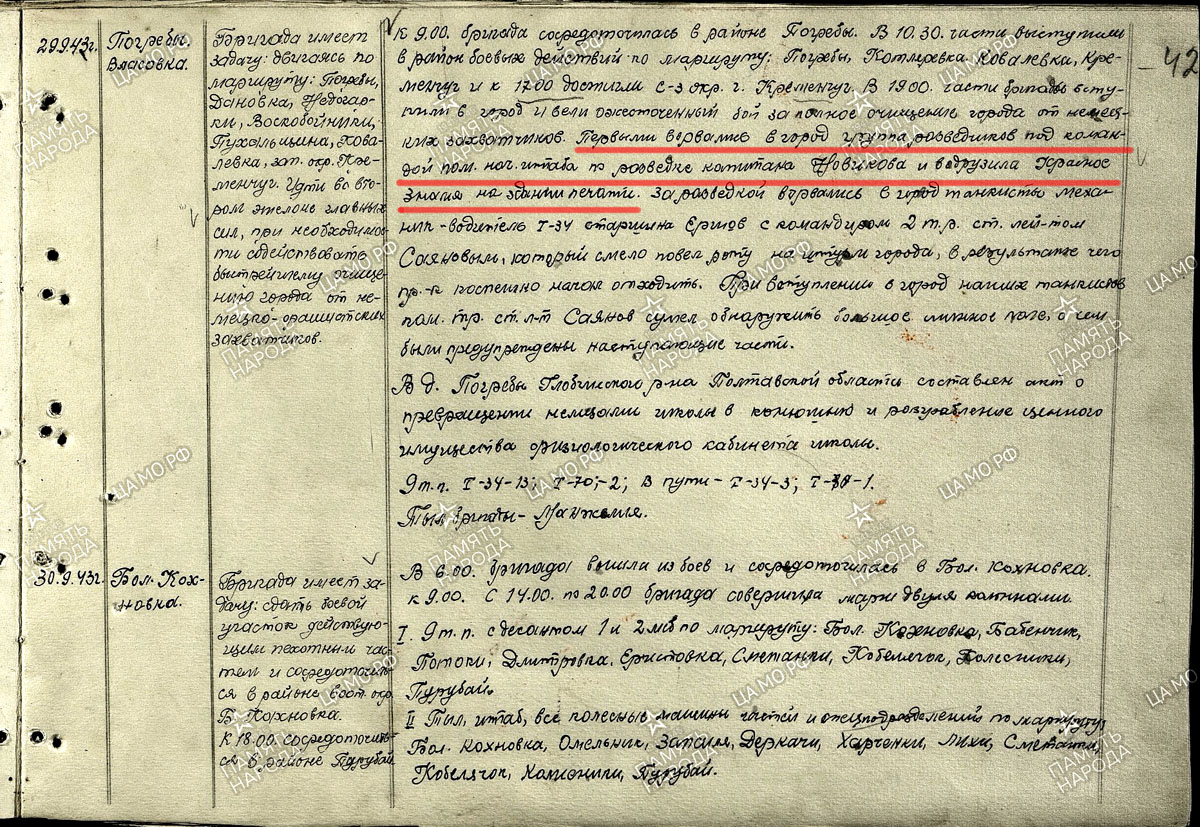 42
29.9.43г.
Погребы.
Власовка.
Бригада имеет
задачу: двигаясь по
маршруту: Погребы,
Дановка, Недогар-
ки, Воскобойники,
Пухальщина, Кова-
левка, зап. окр. Кре-
менчуг. Идти во вто-
ром эшелоне главных
сил, при необходимос-
ти содействовать
быстрейшему очище-
нию города от не-
мецко-фашистских
захватчиков.
К 9.00. бригада сосредоточилась в районе Погребы. В 10.30. части выступили
в район боевых действий по маршруту: Погребы, Ковалевка, Кре-
менчуг и к 17.00 достигли с-з окр. г. Кременчуг. В 19.00. части бригады всту-
пили в город и вели ожесточенный бой за полное очищение города от немец-
ких захватчиков. Первыми ворвались в город группа разведчиков под коман-
дой пом. нач. штаба по разведке капитана Новикова и водрузила Красное
Знамя на здании печати. За разведкой ворвались в город танкисты меха-
ник-водитель Т-34 старшина Ершов с командиром 2 т.р. ст. лей-том
Саяновым, который смело повел роту на штурм города, в результате чего
пр-к поспешно начал отходить. При вступлении в город наших танкистов
ком. тр. ст. л-т Саянов сумел обнаружить большое минное поле, о чем
были предупреждены наступающие части.
В д. Погребы Глобинского р-на Полтавской области составлен акт о
превращении немцами школы в конюшню и разграбление ценного
имущества физиологического кабинета школы.
9 т.п. Т-34-13; Т-70-2; В пути - Т-34-3; Т-70-1.
Тыл бригады - Манжелия.
30.9.43г.
Бол. Кох-
новка.
Бригада имеет за-
дачу: сдать боевой
участок действую-
щим пехотным час-
тям и сосредоточить-
ся в районе вост. окр.
Б. Кохновка.
К 18.00 сосредоточить-
ся в районе Пурубай
В 6.00. бригада вышла из боев и сосредоточилась в Бол. Кохновка.
к 9.00. С 14.00. по 20.00 бригада совершила марш двумя колоннами.
I. 9 т.п. с десантом 1 и 2 мсб по маршруту: Бол. Кохновка, Бабенчик,
Потоки, Дмитровка, Еристовка, Сметанки, Кобелячок, Колесники,
Пурубай.
II Тыл, штаб, все колесные машины частей и спецподразделений по маршруту
Бол. Кохновка, Омельник, Запселя, Деркачи, Харченки, Лихи, Сметанки,
Кобелячок, Пурубай.
ПАМЯТЬ
НАРОДА
ЦАМО.РФ